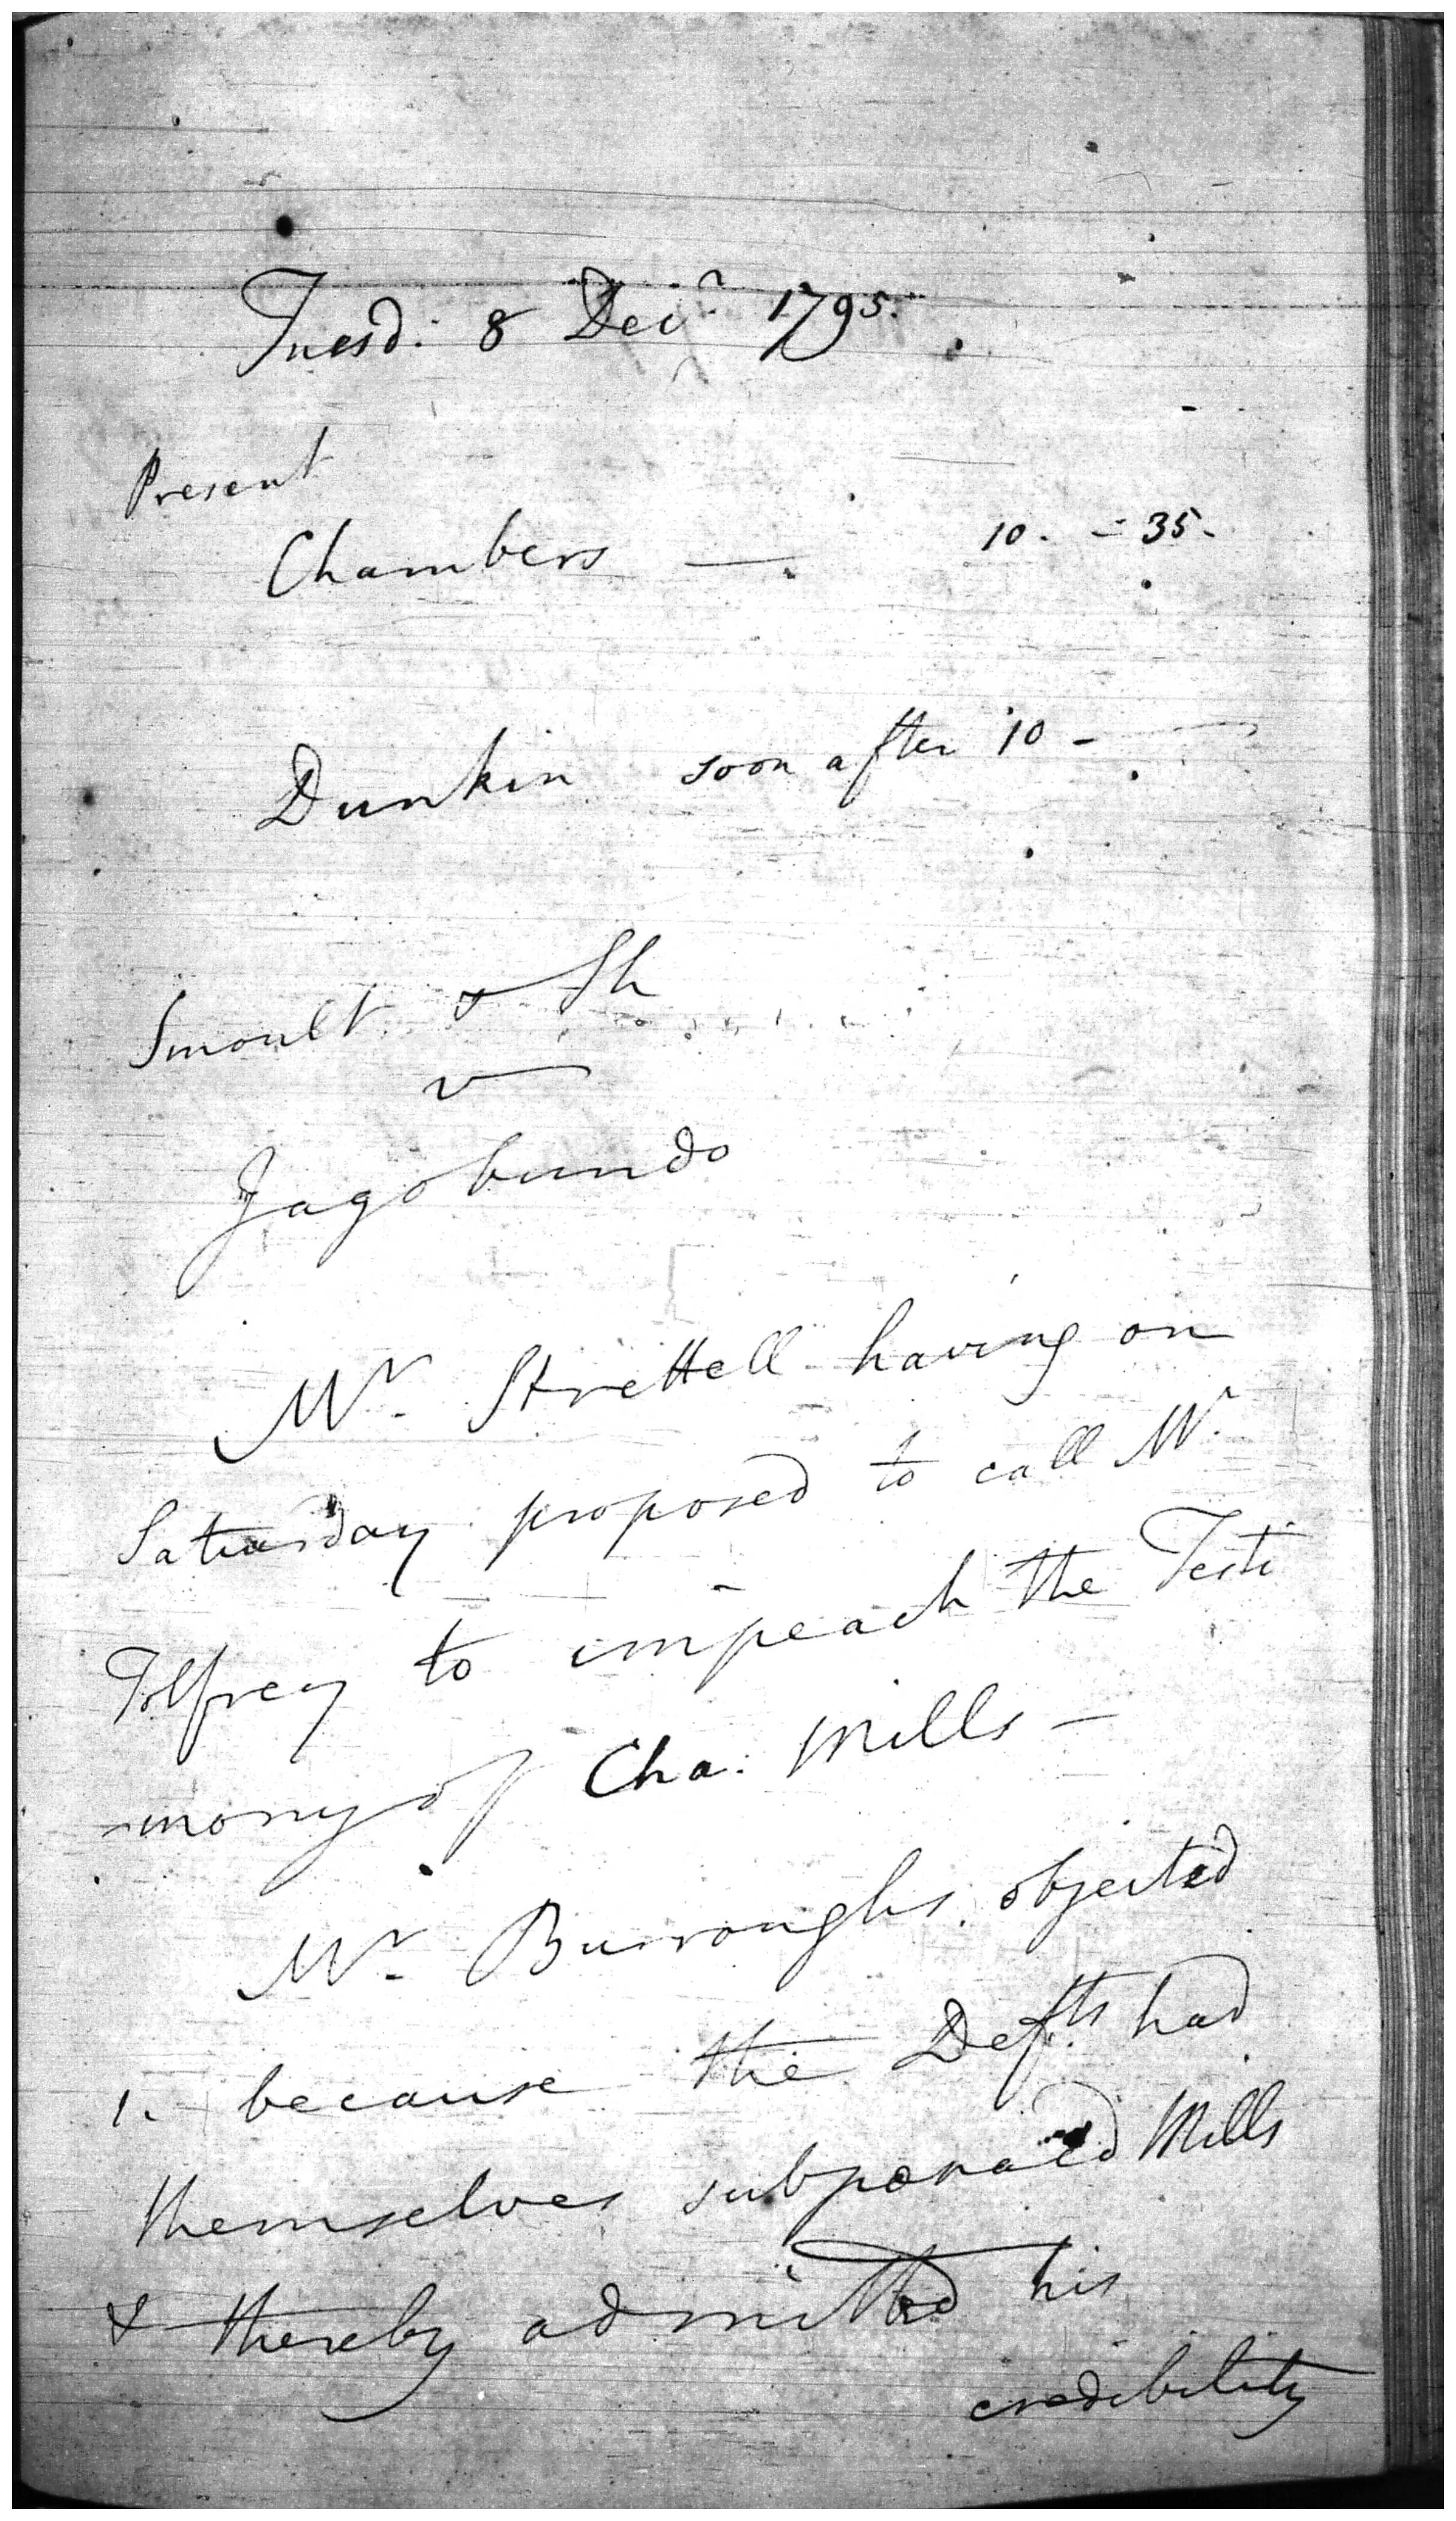 Tuesd: 8 Decr. 1795.
Present
Chambers — 10. = 35.
Dunkin soon after 10 -
Smoult & Sh
v
Jagobundo
Mr. Strettell having on
Saturday proposed to call Mr.
Tolfrey to impeach the Testi
-mony of Cha: Mills —
Mr. Burroughs objected
1. because the Defts. had
themselves subpœnaed Mills
& thereby admitted his
credibility